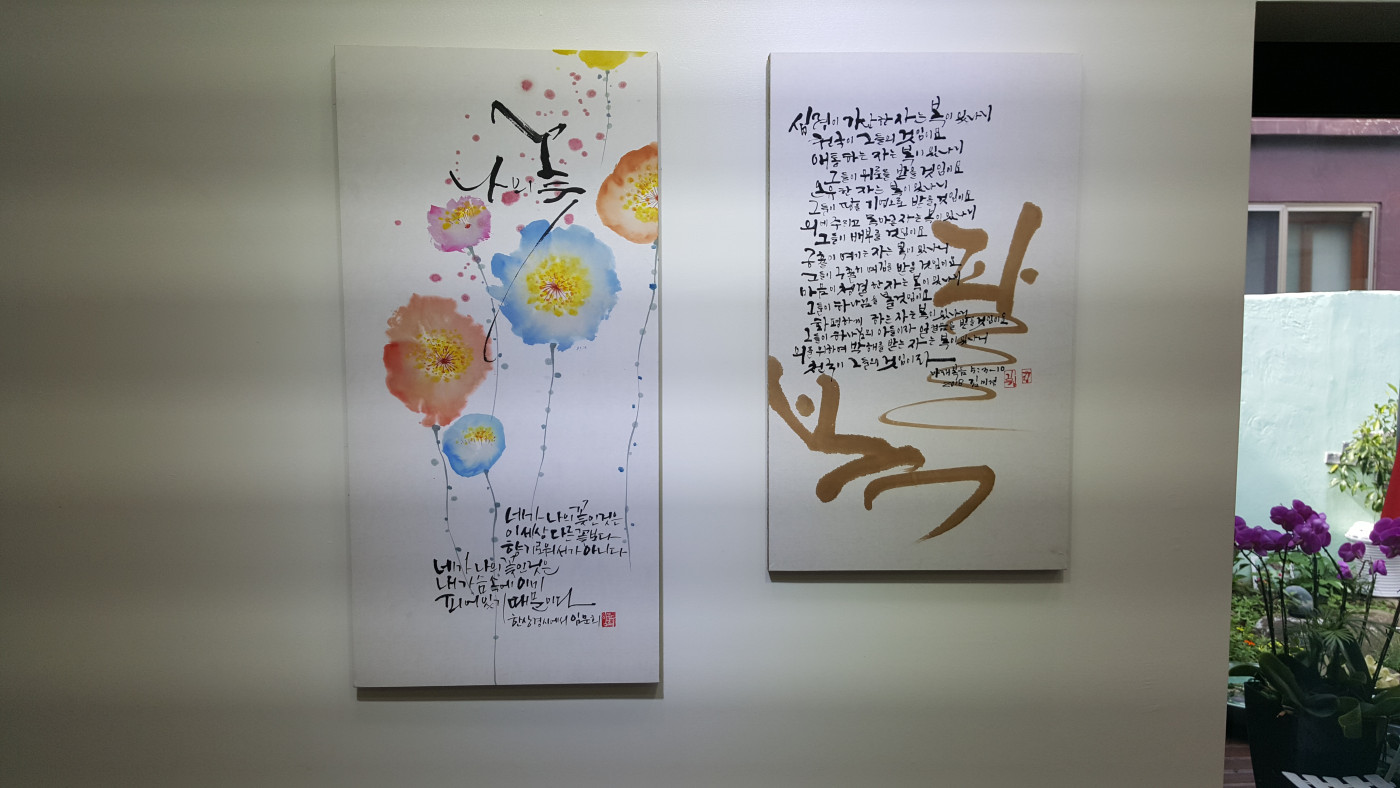 나의 꽃
네가 나의 꽃인 것은
이 세상 다른 꽃보다
향기로워서가 아니다
네가 나의 꽃인 것은
내 가슴 속에 이미
피어 있기 때문이다
한상경 시에서 임문희
심령이 가난한 자는 복이 있나니
천국이 그들의 것임이요
애통하는 자는 복이 있나니
그들이 위로를 받을 것임이요
온유한 자는 복이 있나니
그들이 땅을 기업으로 받을 것임이요
의에 주리고 목마른 자는 복이 있나니
그들이 배부를 것임이요
긍휼히 여기는 자는 복이 있나니
그들이 긍휼히 여김을 받을 것임이요
마음이 청결한 자는 복이 있나니
그들이 하나님을 볼 것임이요
화평하게 하는 자는 복이 있나니
그들이 하나님의 아들이라 일컬음을 받을 것임이요
의를 위하여 박해를 받은 자는 복이 있나니
천국이 그들의 것임이라
마태복음 5:3-10
팔
복